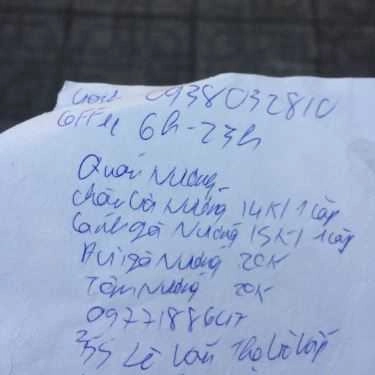 0938032810
COFFEE 6h-23h
Quán Nướng
Chân Gà Nướng 14K/1 cặp
Cánh gà Nướng 15K/1 cặp
Đùi gà Nướng 20K
Tôm Nướng 20K
0977188647
Lê Văn Thọ Gò Vấp